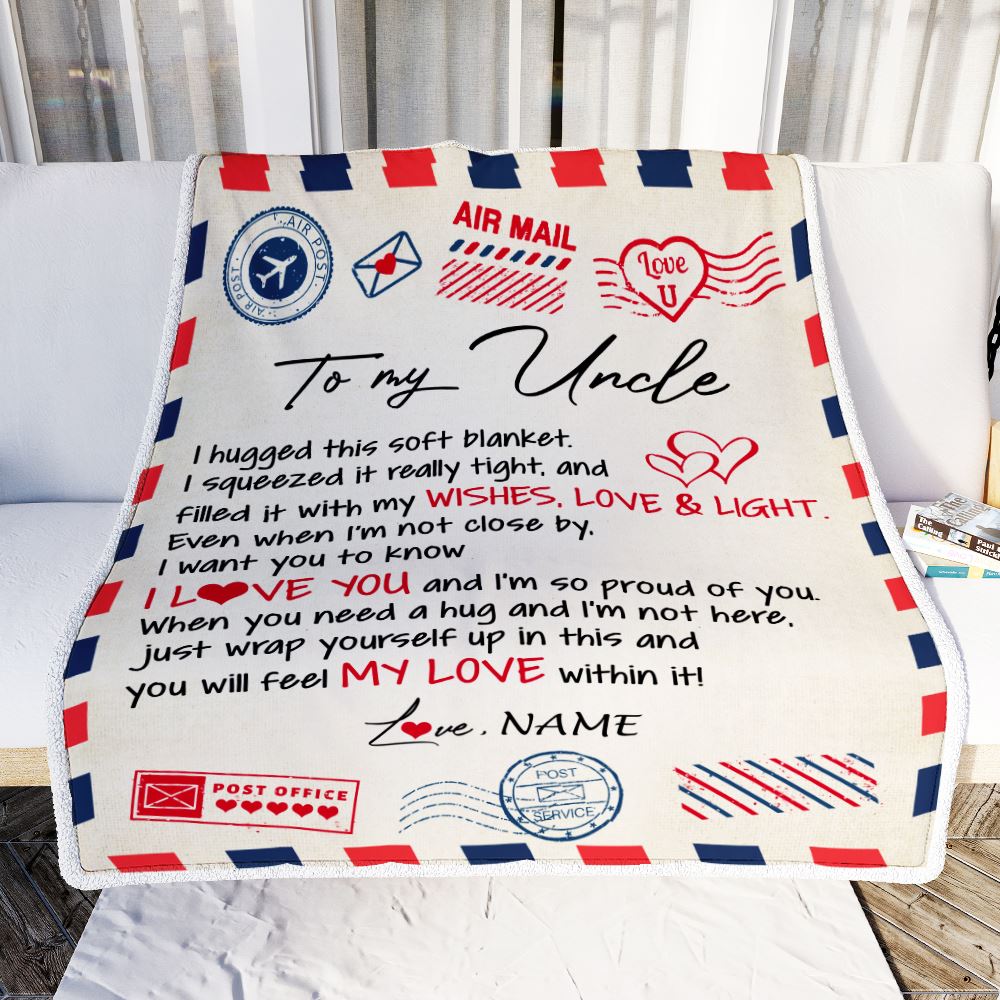 AIR POST
AIR POST
AIR MAIL
Love
U
To my Uncle
I hugged this soft blanket.
I squeezed it really tight, and
filled it with my WISHES, LOVE & LIGHT.
Even when I'm not close by,
I want you to know
I LOVE YOU and I'm so proud of you.
When you need a hug and I'm not here,
just wrap yourself up in this and
you will feel MY LOVE within it!
Love, NAME
POST OFFICE
POST
SERVICE
The
Calling
Paul